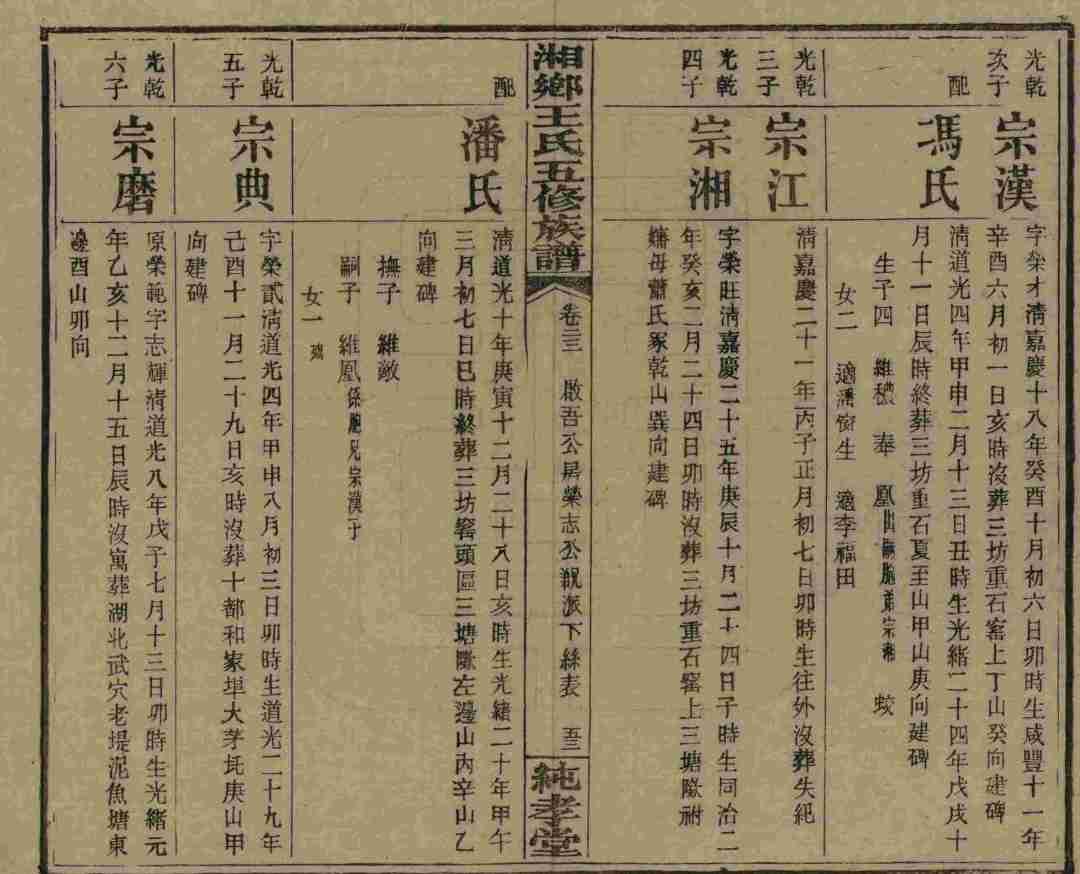 光乾
次子
宗漢
字榮才清嘉慶十八年癸酉十月初六日卯時生咸豐十一年
辛酉六月初一日亥時沒葬三坊重石窰上丁山癸向建碑
配
馮氏
清道光四年甲申二月十三日丑時生光緒二十四年戊戌十
月十一日辰時終葬三坊重石夏至山甲山庚向建碑
生子四 維穠 奉 凰出嗣胞弟宗湘 蛟
女二 適 生 適李福田
光乾
三子
宗江
清嘉慶二十一年丙子正月初七日卯時生往外沒葬失紀
光乾
四子
宗湘
字榮旺清嘉慶二十五年庚辰十月二十四日子時生同治二
年癸亥二月二十四日卯時沒葬三坊重石窰上三塘㘭祔
嬸母蕭氏冢乾山巽向建碑
湘鄉王氏五修族譜
卷三三 啟吾公房榮志公 派下絲表 五三
純孝堂
配
潘氏
清道光十年庚寅十二月二十八日亥時生光緒二十年甲午
三月初七日巳時終葬三坊窰頭區三塘㘭左邊山內辛山乙
向建碑
撫子 維敵
嗣子 維凰係胞兄宗漢三子
女一 殤
光乾
五子
宗典
字榮貳清道光四年甲申八月初三日卯時生道光二十九年
己酉十一月二十九日亥時沒葬十都和家埠大茅坵庚山甲
向建碑
光乾
六子
宗磨
原榮範字志輝清道光八年戊子七月十三日卯時生光緒元
年乙亥十二月十五日辰時沒寓葬湖北武穴老堤泥魚塘東
邊酉山卯向